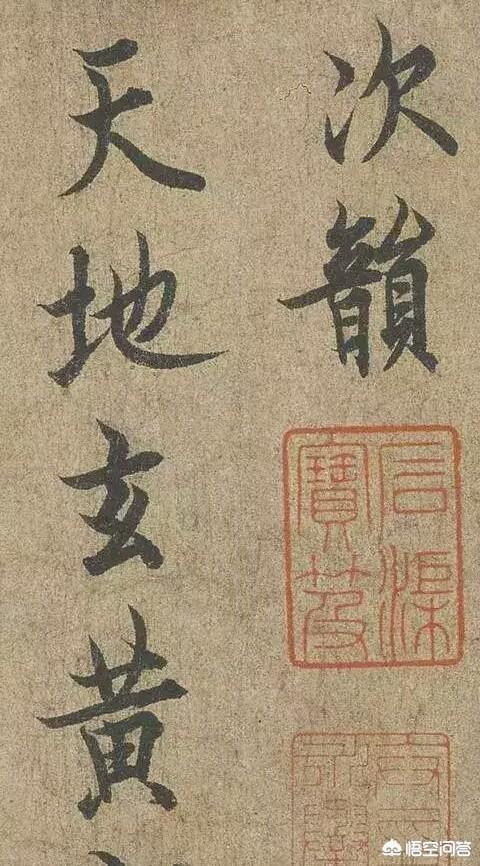 次韻
石渠
寶笈
天地玄黃
悟空问答